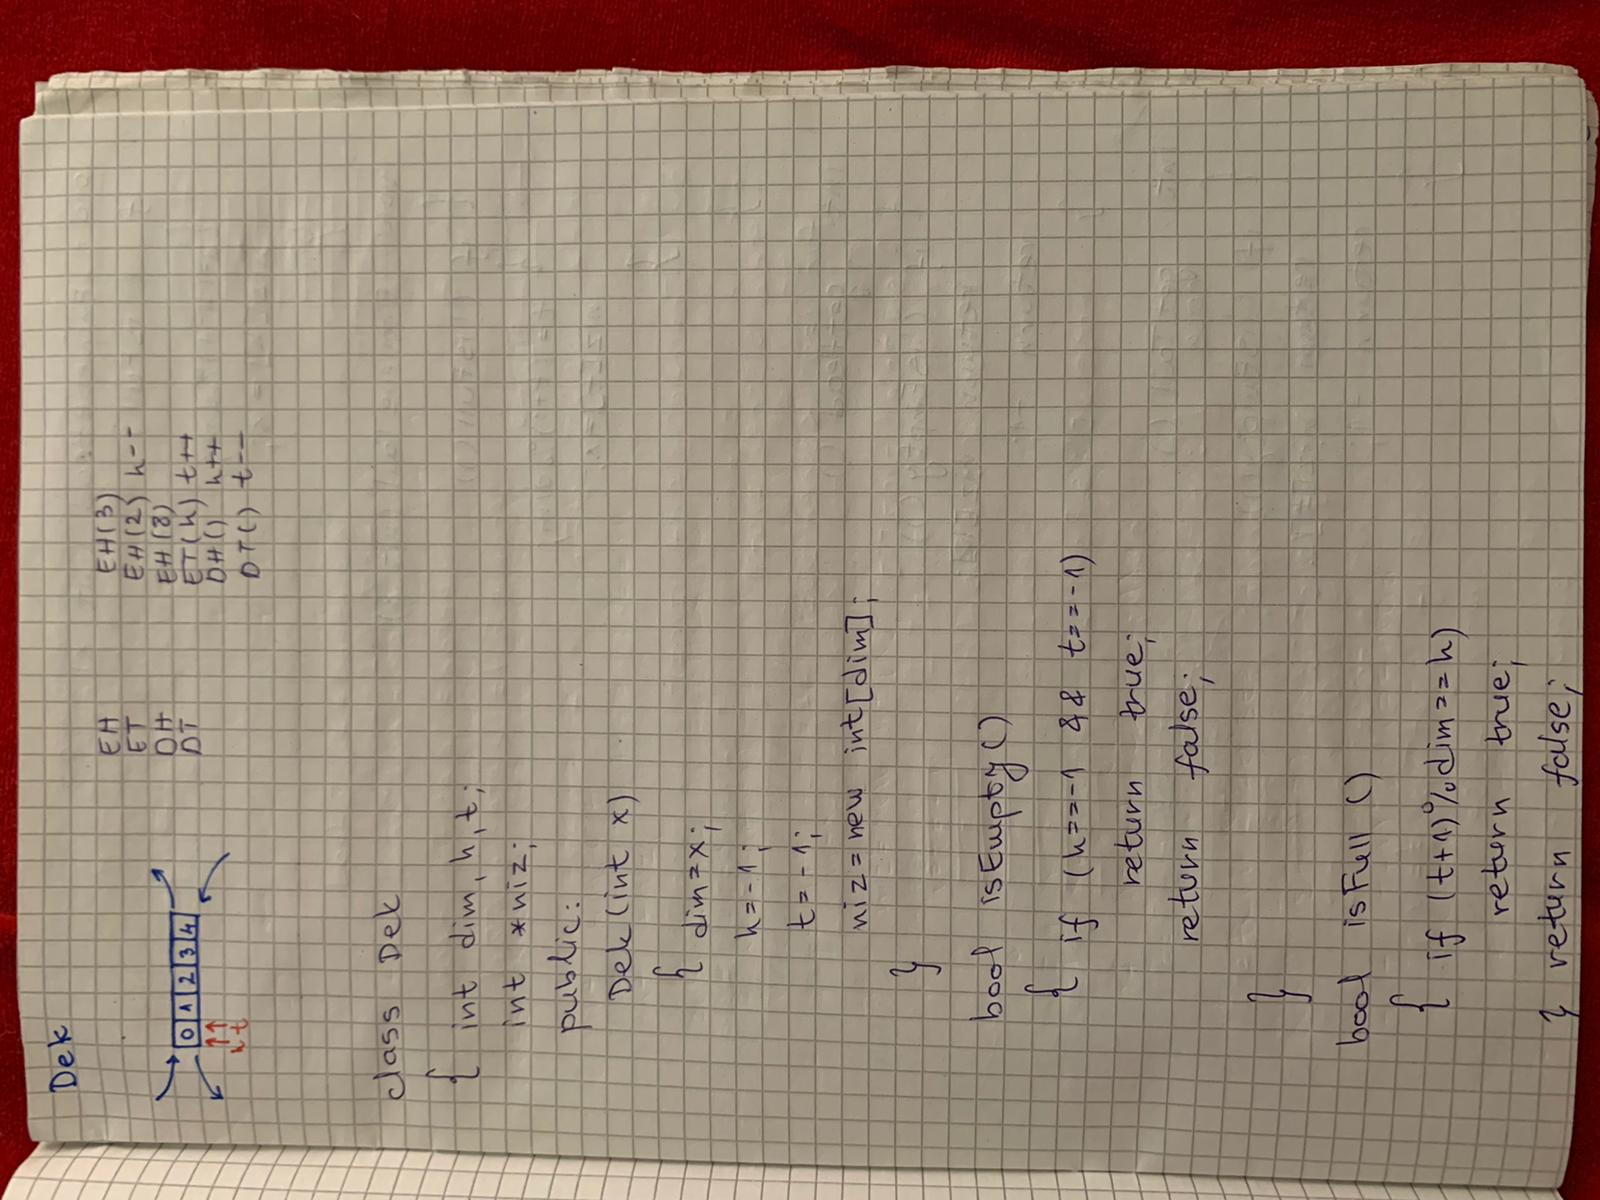 Dek
0 1 2 3 4
h t
EH
ET
DH
DT
EH(3)
EH(2) h--
EH(8)
ET(h) t++
DH() h++
DT() t--
class Dek
{ int dim, h, t;
int *niz;
public:
Dek (int x)
{ dim=x;
h=-1;
t=-1;
niz=new int[dim];
}
bool isEmpty()
{ if (h==-1 && t==-1)
return true;
return false;
}
bool isFull ()
{ if (t+1)%dim==h)
return true;
} return false;